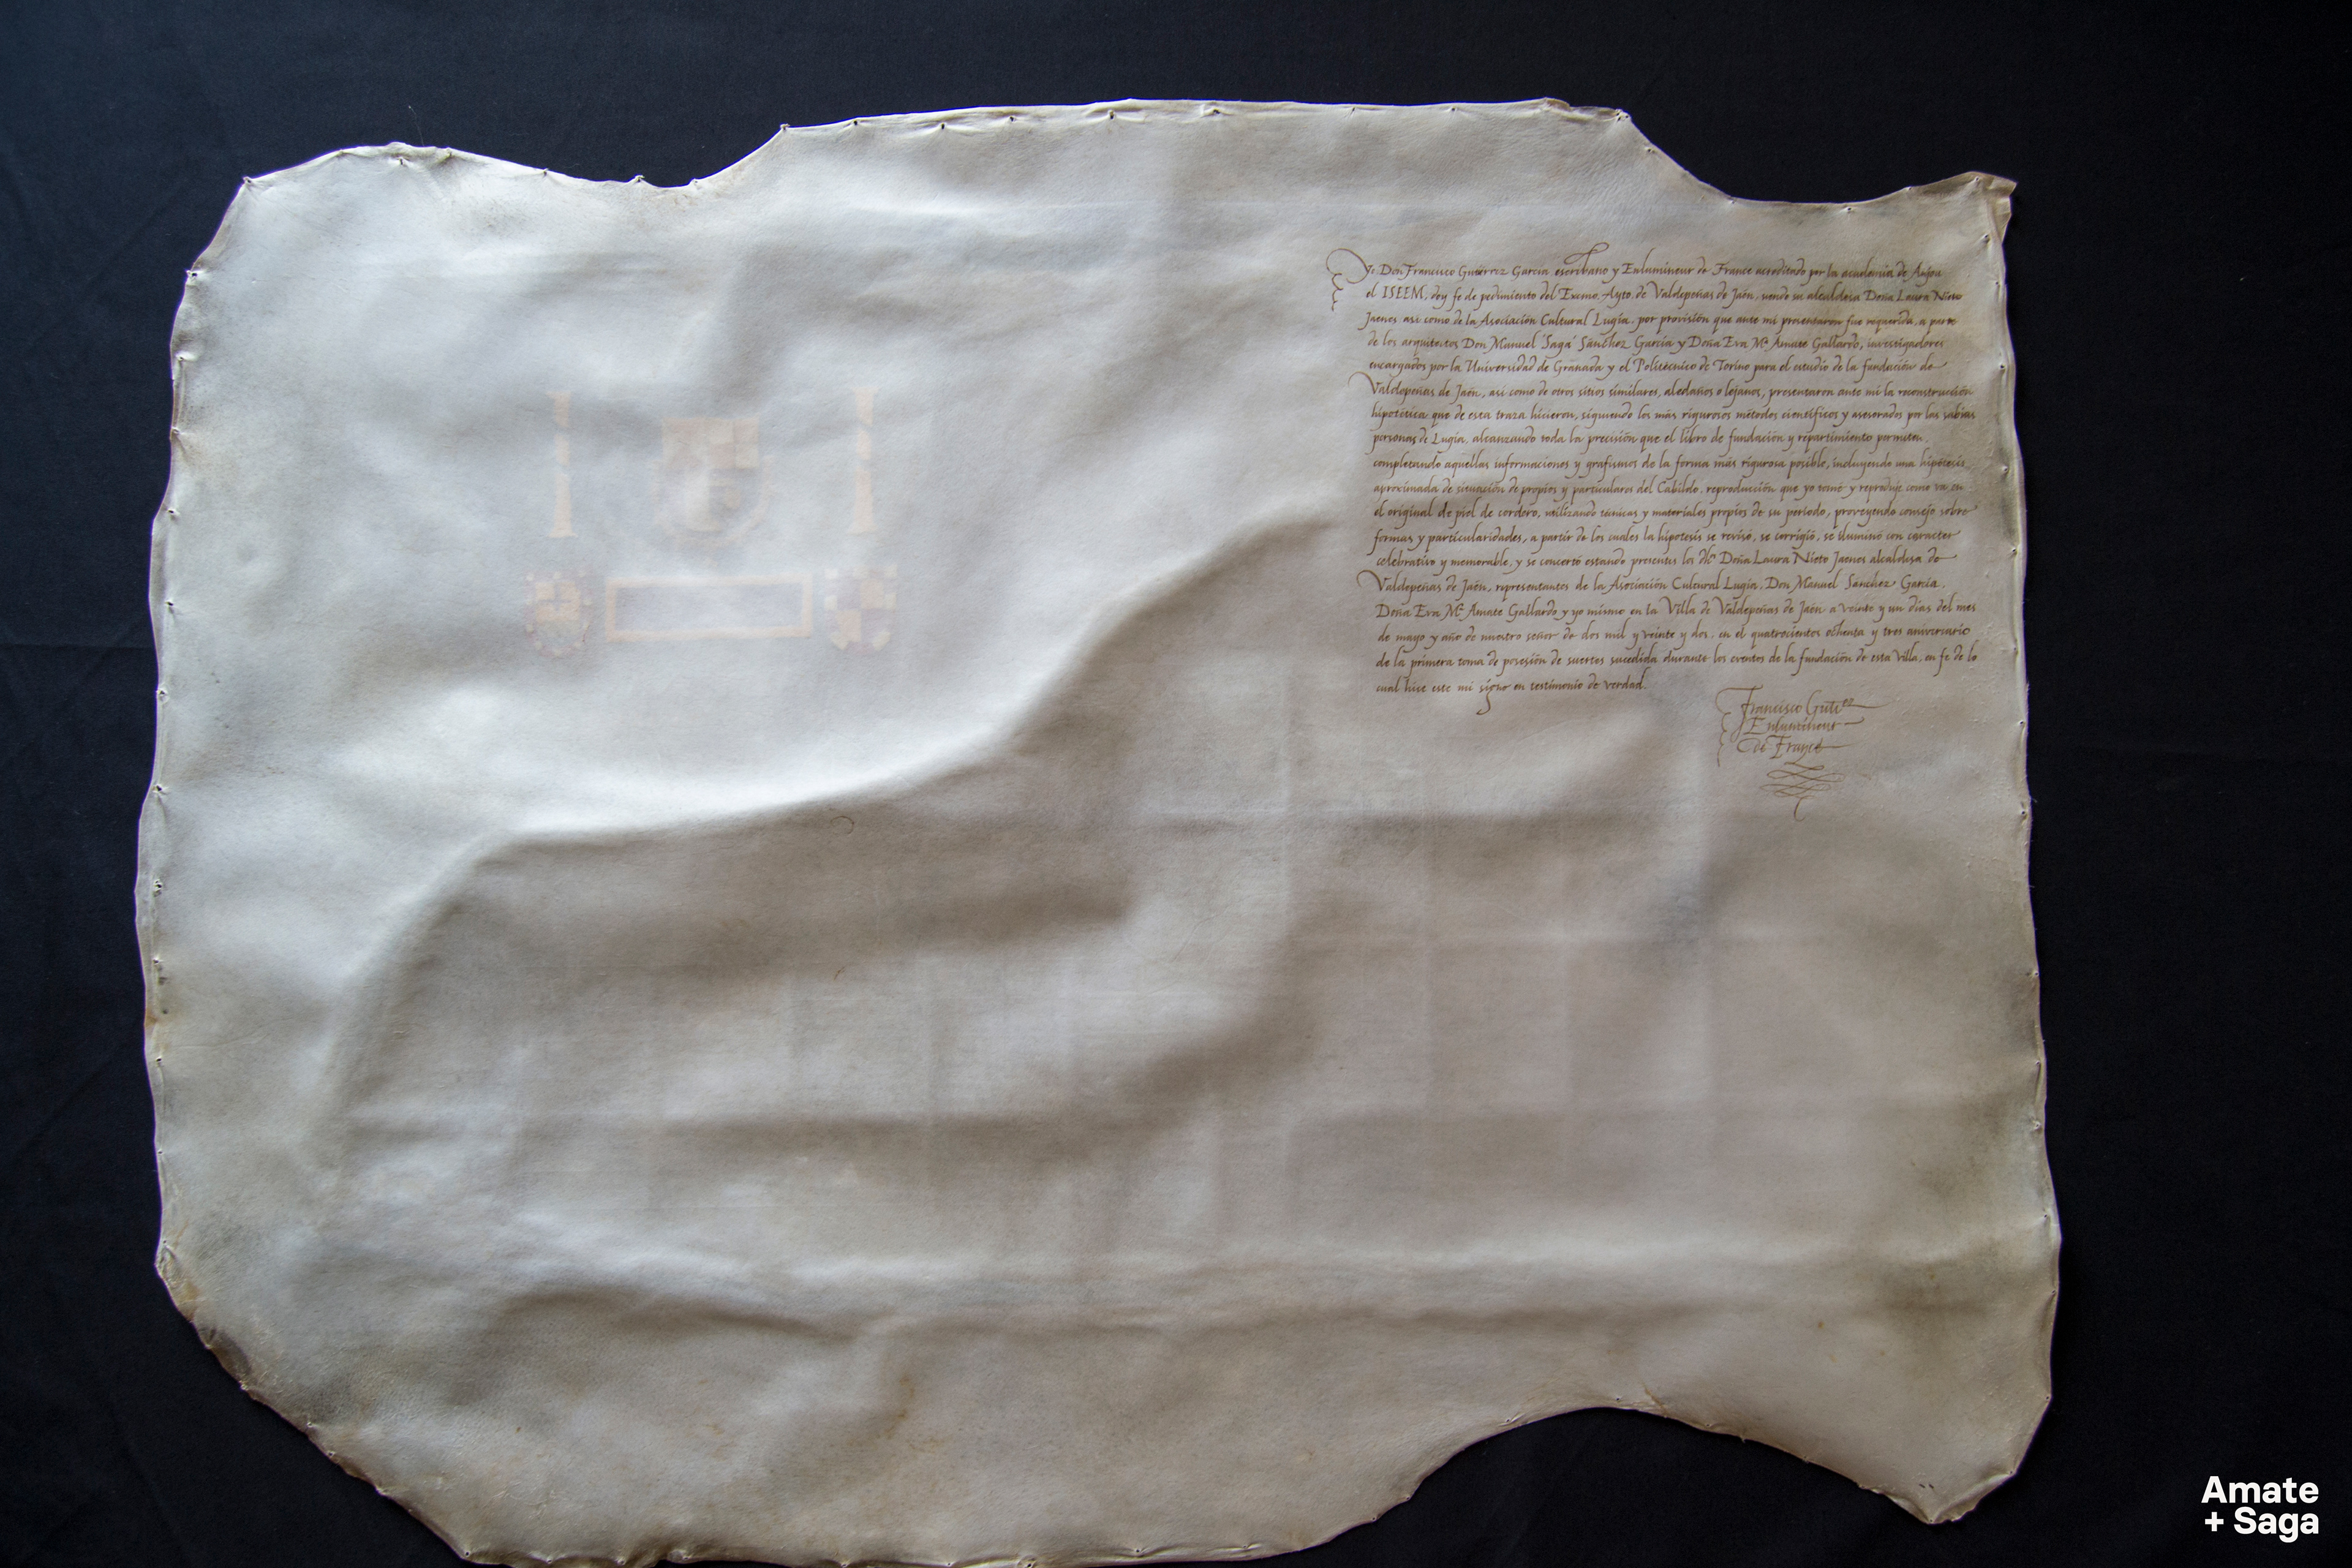 Yo Don Francisco Gutiérrez García escribano y Enlumineur de France acreditado por la academia de Anjou
el ISEEM, doy fe de pedimiento del Excmo. Ayto. de Valdepeñas de Jaén, siendo su alcaldesa Doña Laura Nieto
Jaenes así como de la Asociación Cultural Lugia, por provisión que ante mi presentaron fue requerida, a parte
de los arquitectos Don Manuel 'Saga' Sánchez García y Doña Eva Mª Amate Gallardo, investigadores
encargados por la Universidad de Granada y el Politécnico de Torino para el estudio de la fundación de
Valdepeñas de Jaén, así como de otros sitios similares, aledaños o lejanos, presentaron ante mi la reconstrucción
hipotética que de esta traza hicieron, siguiendo los más rigurosos métodos científicos y asesorados por las sabias
personas de Lugia, alcanzando toda la precisión que el libro de fundación y repartimiento permiten,
completando aquellas informaciones y grafismos de la forma más rigurosa posible, incluyendo una hipótesis
aproximada de situación de propios y particulares del Cabildo, reproducción que yo tomé y reproduje como va en
el original de piel de cordero, utilizando técnicas y materiales propios de su período, proveyendo consejo sobre
formas y particularidades, a partir de los cuales la hipótesis se revisó, se corrigió, se iluminó con caracter
celebrativo y memorable, y se concertó estando presentes los Doña Laura Nieto Jaenes alcaldesa de
Valdepeñas de Jaén, representantes de la Asociación Cultural Lugia, Don Manuel Sánchez García,
Doña Eva Mª Amate Gallardo y yo mismo en la Villa de Valdepeñas de Jaén a veinte y un días del mes
de mayo y año de nuestro señor de dos mil y veinte y dos, en el quatrocientos ochenta y tres aniversario
de la primera toma de posesión de suertes sucedida durante los eventos de la fundación de esta Villa, en fe de lo
cual hise este mi signo en testimonio de verdad.
Francisco Gutiez
Enlumineur
de France
Amate
+ Saga